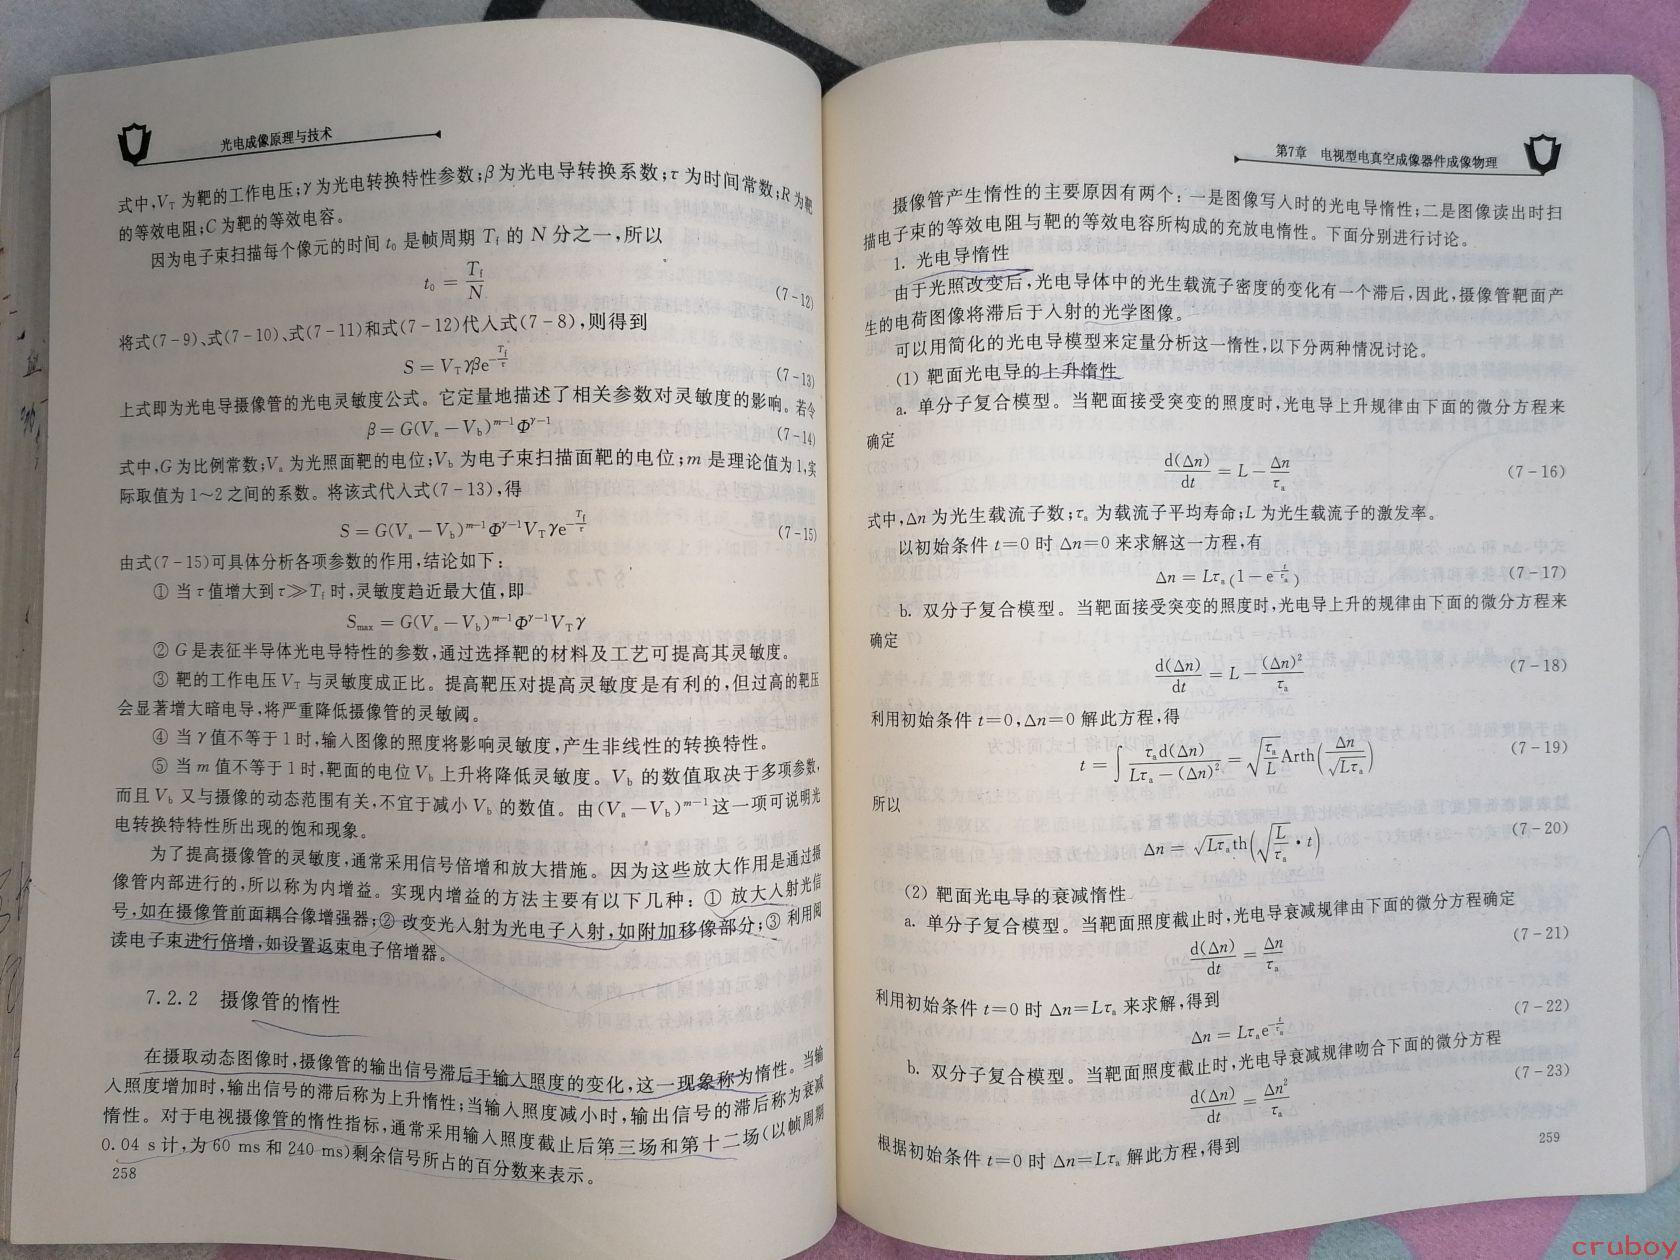 光电成像原理与技术
式中,V_T 为靶的工作电压;γ为光电转换特性参数;β为光电导转换系数;τ为时间常数;R为靶
的等效电阻;C为靶的等效电容。
因为电子束扫描每个像元的时间 t₀ 是帧周期 T_f 的 N 分之一,所以
t₀ = T_f/N (7-12)
将式(7-9)、式(7-10)、式(7-11)和式(7-12)代入式(7-8),则得到
S = V_Tγβe^{-T_f/τ} (7-13)
上式即为光电导摄像管的光电灵敏度公式。它定量地描述了相关参数对灵敏度的影响。若令
β = G(V_a - V_b)^{m-1}Φ^{γ-1} (7-14)
式中,G为比例常数;V_a 为光照面靶的电位;V_b 为电子束扫描面靶的电位;m 是理论值为1,实
际取值为1~2之间的系数。将该式代入式(7-13),得
S = G(V_a - V_b)^{m-1}Φ^{γ-1}V_Tγe^{-T_f/τ} (7-15)
由式(7-15)可具体分析各项参数的作用,结论如下:
① 当τ值增大到τ≫T_f 时,灵敏度趋近最大值,即
S_max = G(V_a - V_b)^{m-1}Φ^{γ-1}V_Tγ
② G是表征半导体光电导特性的参数,通过选择靶的材料及工艺可提高其灵敏度。
③ 靶的工作电压 V_T 与灵敏度成正比。提高靶压对提高灵敏度是有利的,但过高的靶压
会显著增大暗电导,将严重降低摄像管的灵敏阈。
④ 当γ值不等于1时,输入图像的照度将影响灵敏度,产生非线性的转换特性。
⑤ 当m值不等于1时,靶面的电位 V_b 上升将降低灵敏度。V_b 的数值取决于多项参数,
而且 V_b 又与摄像的动态范围有关,不宜于减小 V_b 的数值。由(V_a-V_b)^{m-1}这一项可说明光
电转换特特性所出现的饱和现象。
为了提高摄像管的灵敏度,通常采用信号倍增和放大措施。因为这些放大作用是通过摄
像管内部进行的,所以称为内增益。实现内增益的方法主要有以下几种:① 放大入射光信
号,如在摄像管前面耦合像增强器;② 改变光入射为光电子入射,如附加移像部分;③ 利用阅
读电子束进行倍增,如设置返束电子倍增器。
7.2.2 摄像管的惰性
在摄取动态图像时,摄像管的输出信号滞后于输入照度的变化,这一现象称为惰性。当输
入照度增加时,输出信号的滞后称为上升惰性;当输入照度减小时,输出信号的滞后称为衰减
惰性。对于电视摄像管的惰性指标,通常采用输入照度截止后第三场和第十二场(以帧周期
0.04 s计,为60 ms和240 ms)剩余信号所占的百分数来表示。
258
第7章 电视型电真空成像器件成像物理
摄像管产生惰性的主要原因有两个:一是图像写入时的光电导惰性;二是图像读出时扫
描电子束的等效电阻与靶的等效电容所构成的充放电惰性。下面分别进行讨论。
1. 光电导惰性
由于光照改变后,光电导体中的光生载流子密度的变化有一个滞后,因此,摄像管靶面产
生的电荷图像将滞后于入射的光学图像。
可以用简化的光电导模型来定量分析这一惰性,以下分两种情况讨论。
(1) 靶面光电导的上升惰性
a. 单分子复合模型。当靶面接受突变的照度时,光电导上升规律由下面的微分方程来
确定
d(Δn)/dt = L - Δn/τ_a (7-16)
式中,Δn 为光生载流子数;τ_a 为载流子平均寿命;L为光生载流子的激发率。
以初始条件 t=0 时 Δn=0 来求解这一方程,有
Δn = Lτ_a(1-e^{-t/τ_a}) (7-17)
b. 双分子复合模型。当靶面接受突变的照度时,光电导上升的规律由下面的微分方程来
确定
d(Δn)/dt = L - (Δn)²/τ_a (7-18)
利用初始条件 t=0,Δn=0 解此方程,得
t = ∫ τ_a d(Δn)/(Lτ_a - (Δn)²) = √(τ_a/L) Arth(Δn/√(Lτ_a)) (7-19)
所以
Δn = √(Lτ_a) th(√(L/τ_a) • t) (7-20)
(2) 靶面光电导的衰减惰性
a. 单分子复合模型。当靶面照度截止时,光电导衰减规律由下面的微分方程确定
d(Δn)/dt = Δn/τ_a (7-21)
利用初始条件 t=0 时 Δn=Lτ_a 来求解,得到
Δn = Lτ_a e^{-t/τ_a} (7-22)
b. 双分子复合模型。当靶面照度截止时,光电导衰减规律吻合下面的微分方程
d(Δn)/dt = Δn²/τ_a (7-23)
根据初始条件 t=0 时 Δn=Lτ_a 解此方程,得到
259
cruboy